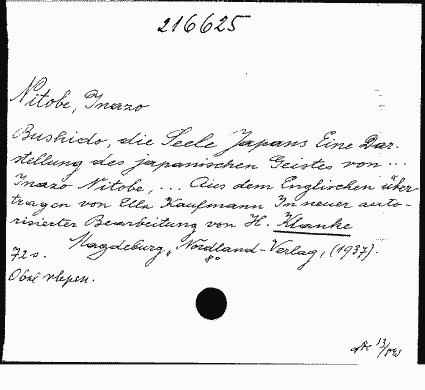 216625
Nitobe, Inazo
Bushido, die Seele Japans Eine Dar-
stellung des japanischen Geistes von ...
Inazo Nitobe, ... Aus dem Englischen über
tragen von Ella Kaufmann In neuer auto-
risierter Bearbeitung von H. Klanke
Magdeburg, "Nordland"-Verlag, (1937).
72 s.
Obě vlepen.